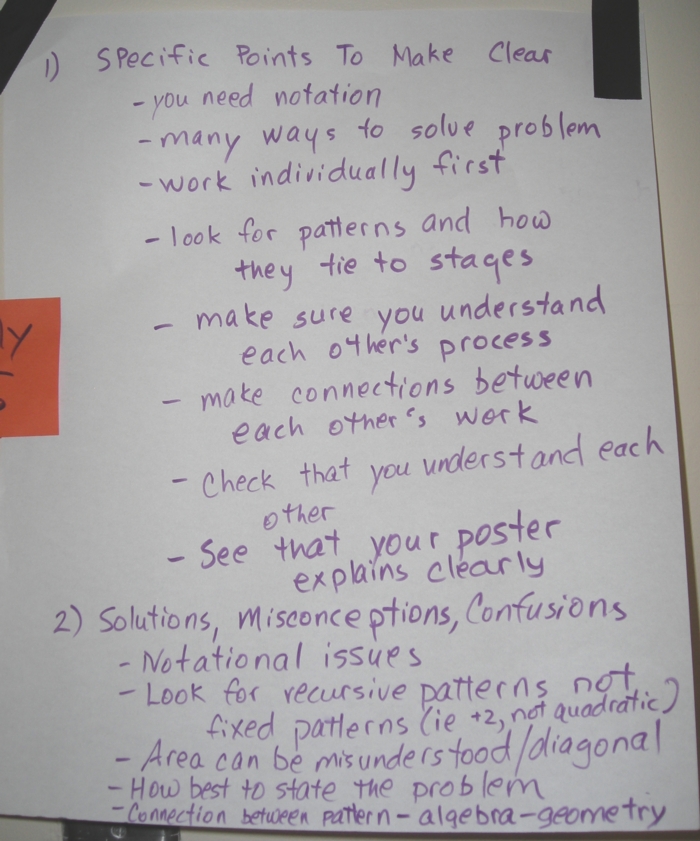 1) Specific Points To Make Clear
- you need notation
- many ways to solve problem
- work individually first
- look for patterns and how
they tie to stages
- make sure you understand
each other's process
- make connections between
each other's work
- Check that you understand each
other
- See that your poster
explains clearly
2) Solutions, Misconceptions, Confusions
- Notational issues
- Look for recursive patterns not
fixed patterns (ie +2, not quadratic)
- Area can be misunderstood/diagonal
- How best to state the problem
- Connection between pattern - algebra - geometry